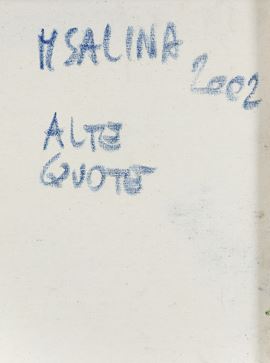 M SALINA
2002
ALTE
QUOTE